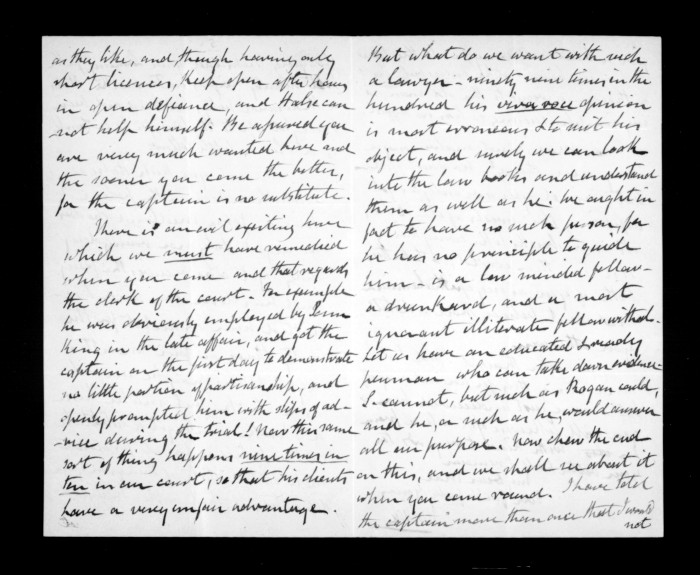 as they like, and, though having only
short licences, keep open after hours
in open defiance, and Halse can
not help himself. Be assured you
are very much wanted here and
the sooner you come the better,
for the captain is no substitute.
There is an evil existing here
which we must have remedied
when you come and that regards
the clerk of the court. For example
he was obviously employed by
King in the late affair, and got the
captain on the first day to demonstrate
no little portion of partisanship, and
openly prompted him with slips of ad-
-vice during the trial! Now this same
sort of thing happens nine times in
ten in our court, so that his clients
have a very unfair advantage.
But what do we want with such
a lawyer - ninety nine times in the
hundred his viva voce opinion
is most erroneous & to suit his
object, and surely we can look
into the law books and understand
them as well as he: we ought in
fact to have no such person, for
he has no principle to guide
him - is a low minded fellow -
a drunkard, and a most
ignorant illiterate fellow withal.
Let us have an educated & ready
penman who can take down evidence -
I cannot, but such as Rogan could,
and he, or such as he, would answer
all our purpose. Now chew the cud
on this, and we shall see about it
when you come round. I have told
the captain more than once that I would
not